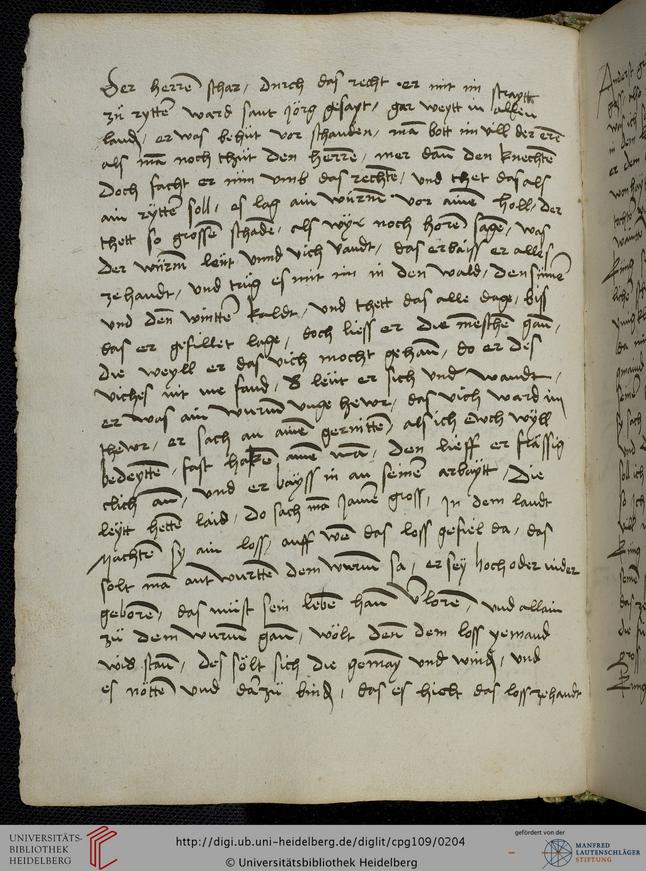 Der herre schar / durch das recht er mit im straytt
zů rytte ward sant Jörg gesayt / gar weytt in allen
land / er was behůt vor schanden / mā bott im vil der ere
als mā noch thůt den herre / mer dan den knechte
Doch facht er nün umb das rechte / und thet das als
ain rytter soll / es lag ain würme vor aine holl / der
thett so grosse schade / als wyr noch hore sage / was
der würm leüt unnd vich vandt / das erbaiss er alles
ze handt / und trůg es mit im in den wald / den sumer
und den wintter kaldt / und thett das alle dage / biss
das er gefillet lage / doch liess er die mensche gan /
die weyll er das vich mocht gehan / do er des
viches nit me fand / leüt er sich und wandt /
er was ain wurm unge hewr / das vich ward im
thewr / er sach an aine gemitte / als ich ewch wyll
bedeytte / fast hake aine mā / den lieff er
clich an / und er bayss in an seine arbaytt / Die
leytt hette laid / do sach mā Jamer gross / In dem landt
machten sy ain loss / auff we das loss gefiel da / das
solt mā ant wurtte dem wurm sa / er sey hoch oder nider
gebore / das müst sein lebe han vlore / und allain
zů dem wurme gan / wölt den dem loss yemand
wid stan / des sölt sich die gemay und wind / und
es nötte und darzů bind / das es hielt das loss ze handt
UNIVERSITÄTS-
BIBLIOTHEK
HEIDELBERG
http://digi.ub.uni-heidelberg.de/diglit/cpg109/0204
© Universitätsbibliothek Heidelberg
gefördert von der
MANFRED
LAUTENSCHLÄGER
STIFTUNG